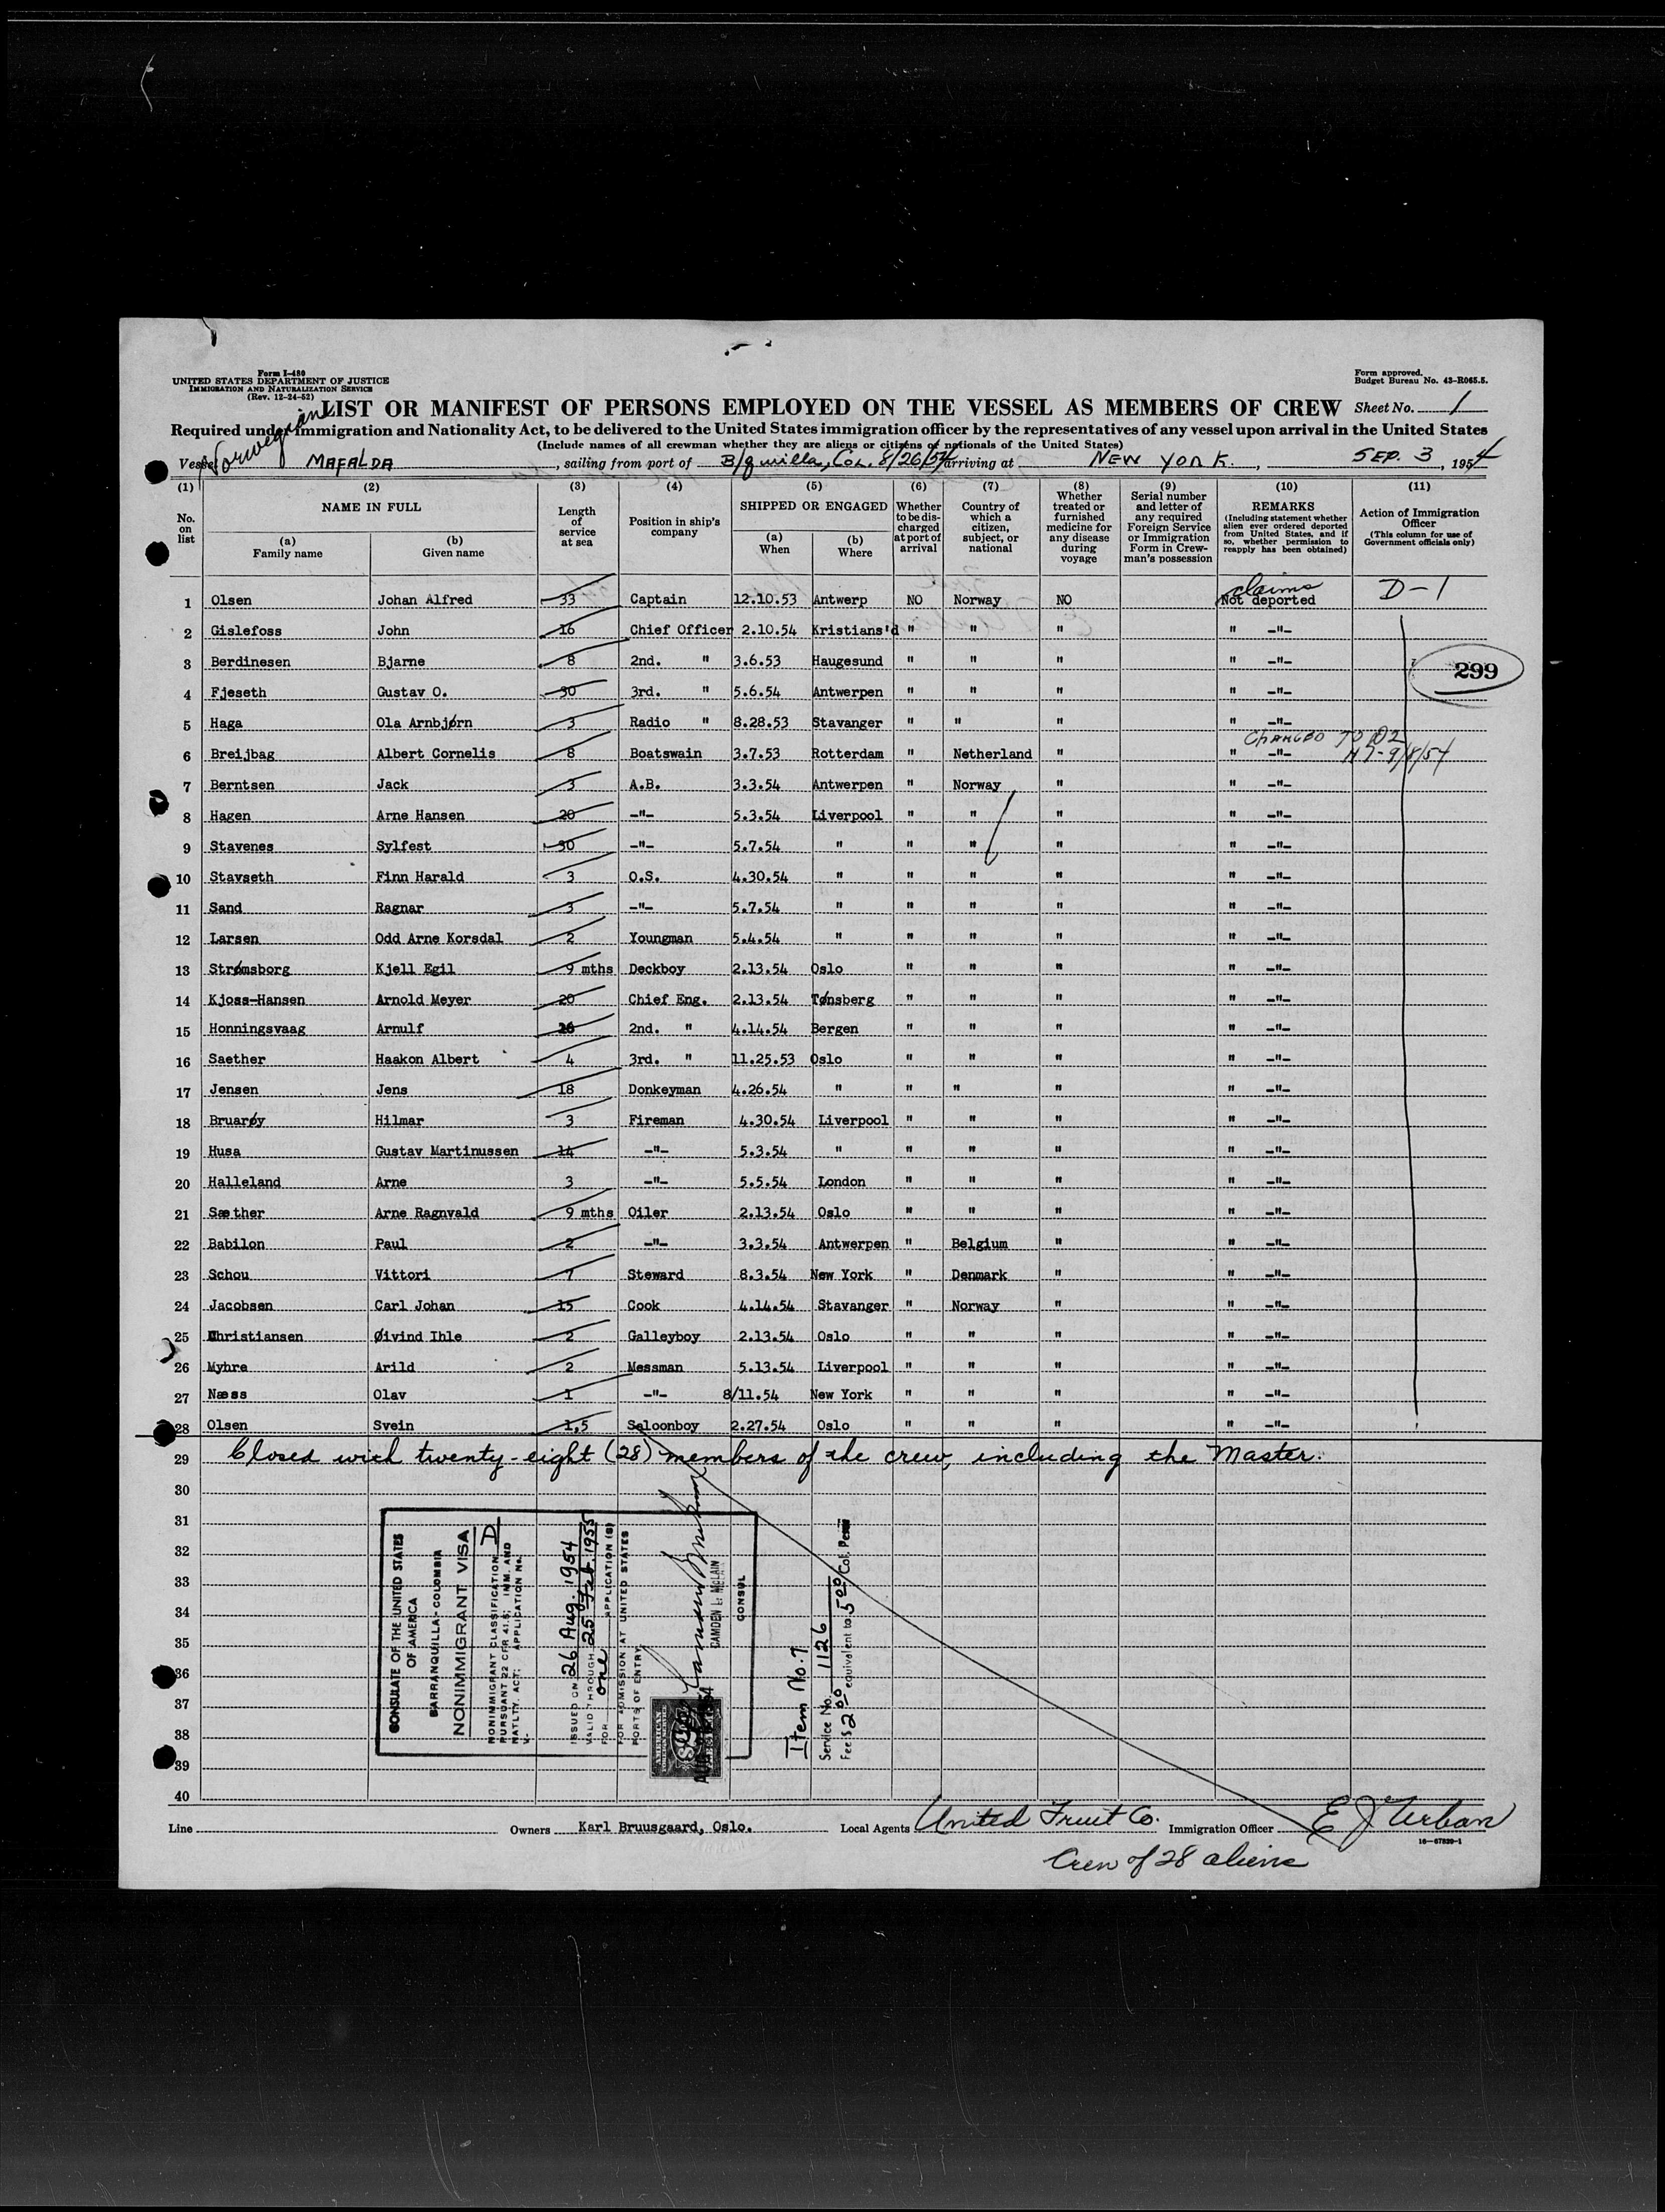 Form I-480
UNITED STATES DEPARTMENT OF JUSTICE
IMMIGRATION AND NATURALIZATION SERVICE
(Rev. 12-24-52)
Form approved.
Budget Bureau No. 43-R065.5.
LIST OR MANIFEST OF PERSONS EMPLOYED ON THE VESSEL AS MEMBERS OF CREW Sheet No. 1
Required under Immigration and Nationality Act, to be delivered to the United States immigration officer by the representatives of any vessel upon arrival in the United States
(Include names of all crewman whether they are aliens or citizens or nationals of the United States)
Norwegian
Vessel MAFALDA, sailing from port of B/quilla, Col. 8/26/54 arriving at NEW YORK, SEP. 3, 1954
(1) (2) (3) (4) (5) (6) (7) (8) (9) (10) (11)
No. on list
NAME IN FULL
(a) Family name
(b) Given name
Length of service at sea
Position in ship's company
SHIPPED OR ENGAGED
(a) When
(b) Where
Whether to be discharged at port of arrival
Country of which a citizen, subject, or national
Whether treated or furnished medicine for any disease during voyage
Serial number and letter of any required Foreign Service or Immigration Form in Crewman's possession
REMARKS
(Including statement whether alien ever ordered deported from United States, and if so, whether permission to reapply has been obtained)
Action of Immigration Officer
(This column for use of Government officials only)
claims
1 Olsen Johan Alfred 33 Captain 12.10.53 Antwerp NO Norway NO Not deported D-1
2 Gislefoss John 16 Chief Officer 2.10.54 Kristians'd " " " " -"-
3 Berdinesen Bjarne 8 2nd. " 3.6.53 Haugesund " " " " -"-
299
4 Fjeseth Gustav O. 30 3rd. " 5.6.54 Antwerpen " " " " -"-
5 Haga Ola Arnbjørn 3 Radio " 8.28.53 Stavanger " " " " -"-
CHANGED TO D2
6 Breijbag Albert Cornelis 8 Boatswain 3.7.53 Rotterdam " Netherland " " -"- 9/8/54
7 Berntsen Jack 3 A.B. 3.3.54 Antwerpen " Norway " " -"-
8 Hagen Arne Hansen 20 -"- 5.3.54 Liverpool " " " " -"-
9 Stavenes Sylfest 30 -"- 5.7.54 " " " " " -"-
10 Stavseth Finn Harald 3 O.S. 4.30.54 " " " " " -"-
11 Sand Ragnar 3 -"- 5.7.54 " " " " " -"-
12 Larsen Odd Arne Korsdal 2 Youngman 5.4.54 " " " " " -"-
13 Strømsborg Kjell Egil 9 mths Deckboy 2.13.54 Oslo " " " " -"-
14 Kjoss-Hansen Arnold Meyer 20 Chief Eng. 2.13.54 Tønsberg " " " " -"-
15 Honningsvaag Arnulf 2nd. " 4.14.54 Bergen " " " " -"-
16 Saether Haakon Albert 4 3rd. " 11.25.53 Oslo " " " " -"-
17 Jensen Jens 18 Donkeyman 4.26.54 " " " " " -"-
18 Bruarøy Hilmar 3 Fireman 4.30.54 Liverpool " " " " -"-
19 Husa Gustav Martinussen 14 -"- 5.3.54 " " " " " -"-
20 Halleland Arne 3 -"- 5.5.54 London " " " " -"-
21 Sæther Arne Ragnvald 9 mths Oiler 2.13.54 Oslo " " " " -"-
22 Babilon Paul 2 -"- 3.3.54 Antwerpen " Belgium " " -"-
23 Schou Vittori 7 Steward 8.3.54 New York " Denmark " " -"-
24 Jacobsen Carl Johan 15 Cook 4.14.54 Stavanger " Norway " " -"-
25 Christiansen Øivind Ihle 2 Galleyboy 2.13.54 Oslo " " " " -"-
26 Myhre Arild 2 Messman 5.13.54 Liverpool " " " " -"-
27 Næss Olav 1 -"- 8/11.54 New York " " " " -"-
28 Olsen Svein 1,5 Saloonboy 2.27.54 Oslo " " " " -"-
29 Closed with twenty-eight (28) members of the crew, including the Master.
30
31
32
33
34
35
36
37
38
39
40
CONSULATE OF THE UNITED STATES
OF AMERICA
BARRANQUILLA - COLOMBIA
NONIMMIGRANT VISA
NONIMMIGRANT CLASSIFICATION D
PURSUANT 22 CFR 41.5; IMM. AND
NATLTY. ACT; APPLICATION No.
V-
ISSUED ON 26 Aug. 1954
VALID THROUGH 25 Feb. 1955
FOR one APPLICATION (S)
FOR ADMISSION AT UNITED STATES
PORTS OF ENTRY
CAMDEN L. McLAIN
CONSUL
Item No. 7
Service No. 1126
Fee $ 2.00 equivalent to 5.00 Col. Pesos
Line Owners Karl Bruusgaard, Oslo. Local Agents United Fruit Co. Immigration Officer E J Urban
16-67820-1
Crew of 28 aliens